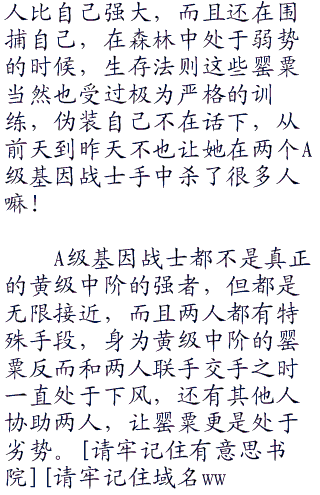 人比自己强大，而且还在围
捕自己，在森林中处于弱势
的时候，生存法则这些罂粟
当然也受过极为严格的训
练，伪装自己不在话下，从
前天到昨天不也让她在两个A
级基因战士手中杀了很多人
嘛！
A级基因战士都不是真正
的黄级中阶的强者，但都是
无限接近，而且两人都有特
殊手段，身为黄级中阶的罂
粟反而和两人联手交手之时
一直处于下风，还有其他人
协助两人，让罂粟更是处于
劣势。[请牢记住有意思书
院][请牢记住域名ww